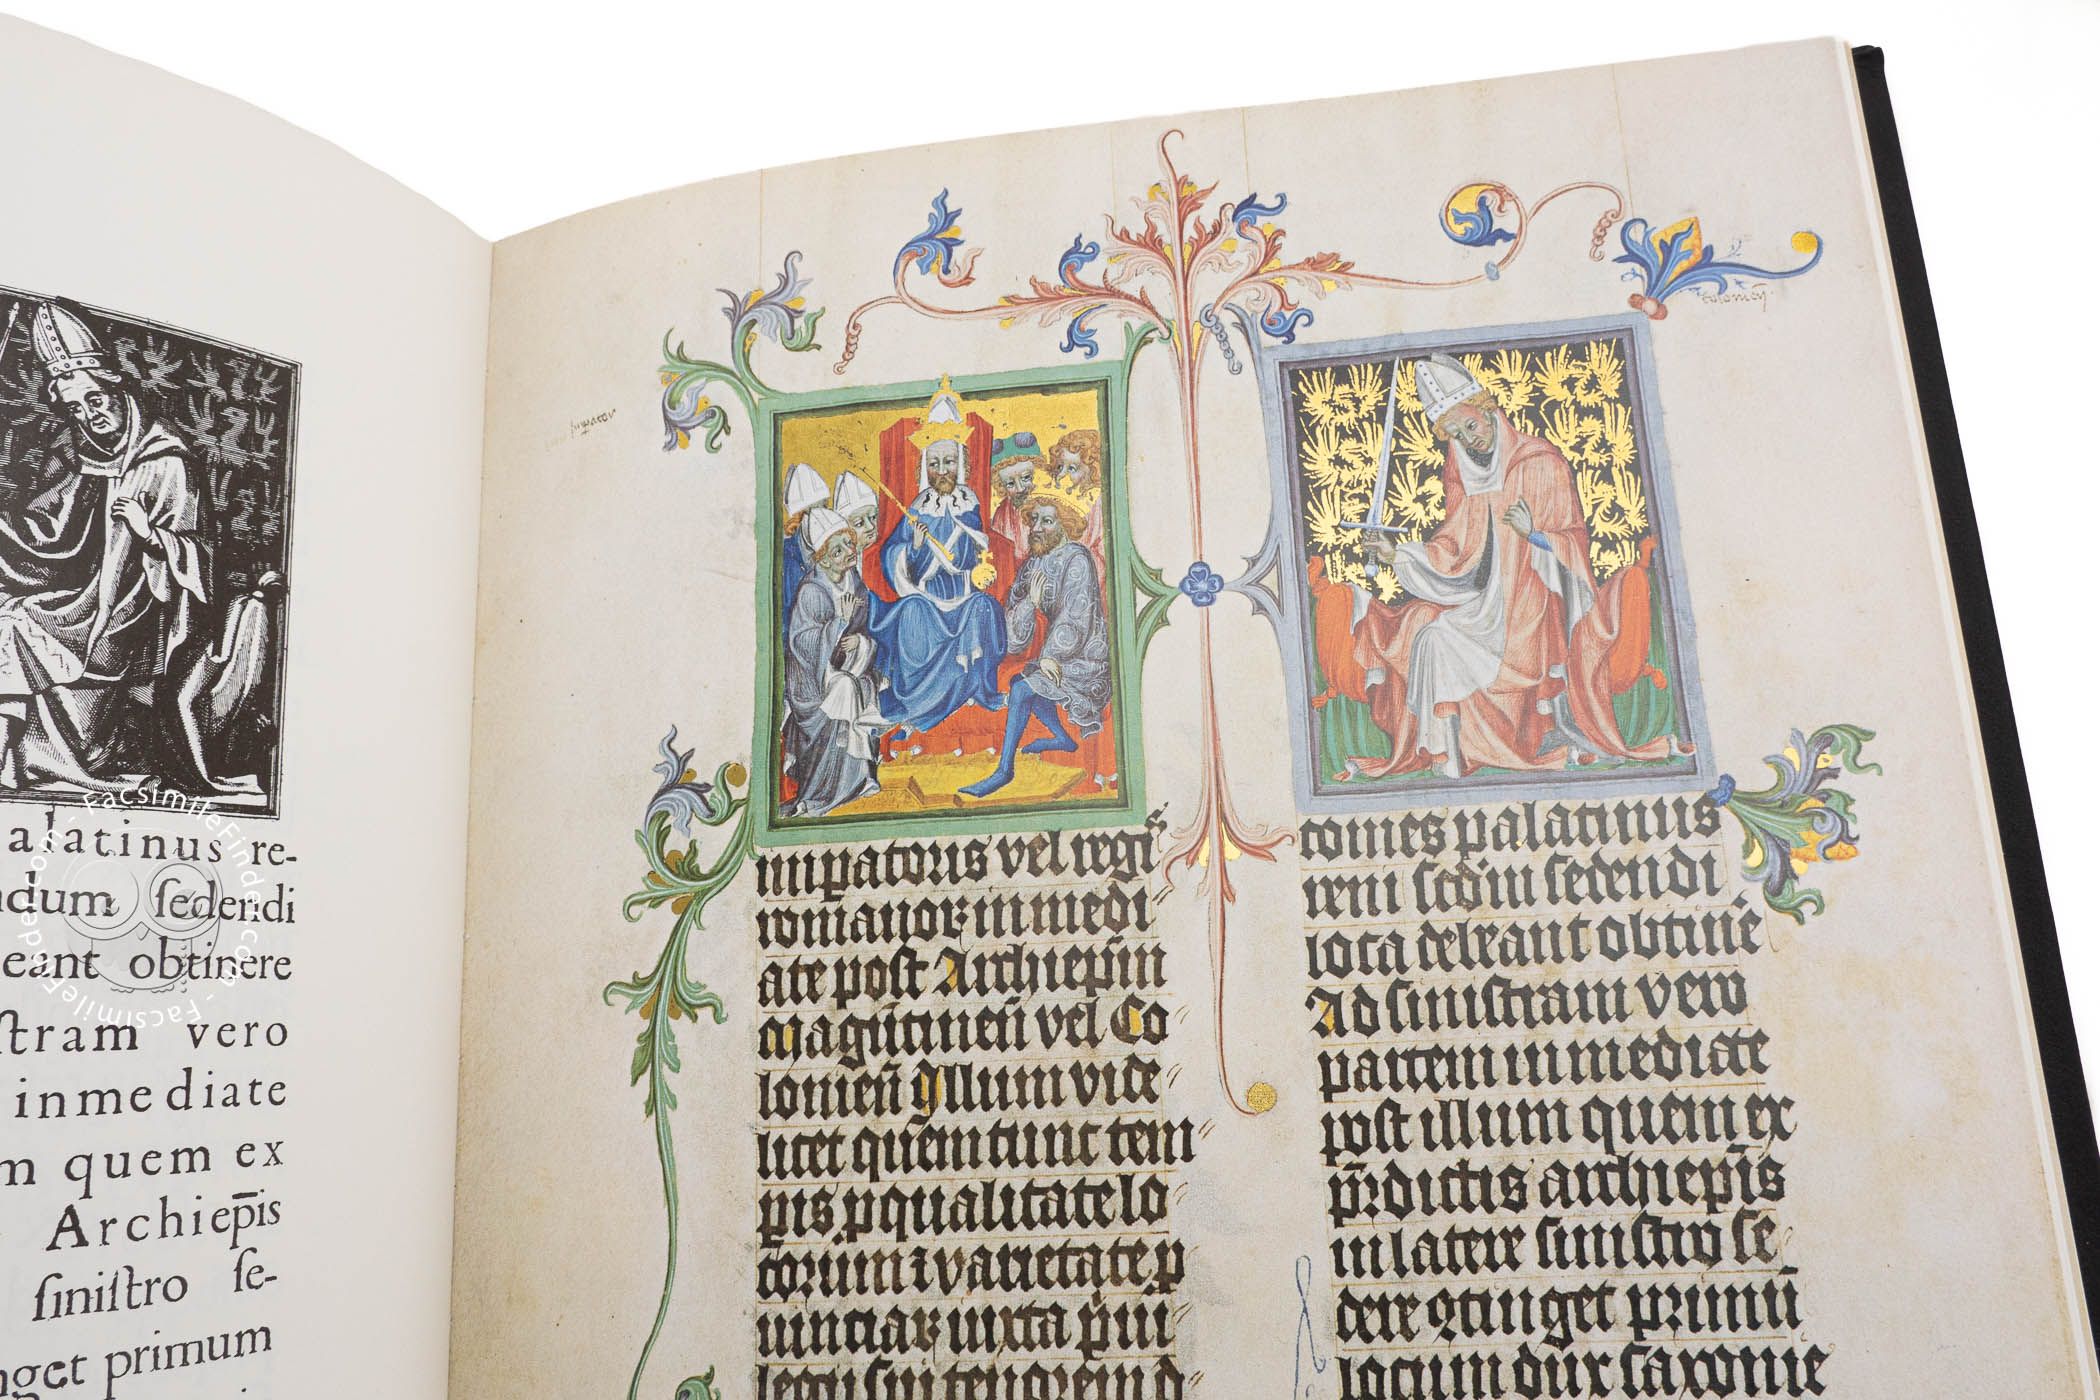 alatinus re-
ndum ſedendi
eant obtinere
ſtram vero
inmediate
m quem ex
Archiep̄is
ſiniſtro ſe-
nget primum
FacsimileFinder.com - FacsimileFinder.com -
imꝑatoris vel regis
romanoꝝ in medi
ate post Archiep̄m
Magūtineñ vel Co
lonieñ Illum vide
licet quem tunc tem
ꝑis ꝑ qualitate lo
corum ⁊ varietate ꝓ
vinciaꝝ iuxta p̄ui
legij sui tenorem
comes palatinus
reni scdm sedendi
loca debeant obtinē
Ad sinistram vero
partem inmediate
post illum quem ex
p̄dictis archiep̄is
in latere sinistro se
dere ꝯtinget primū
locum dux saxonie